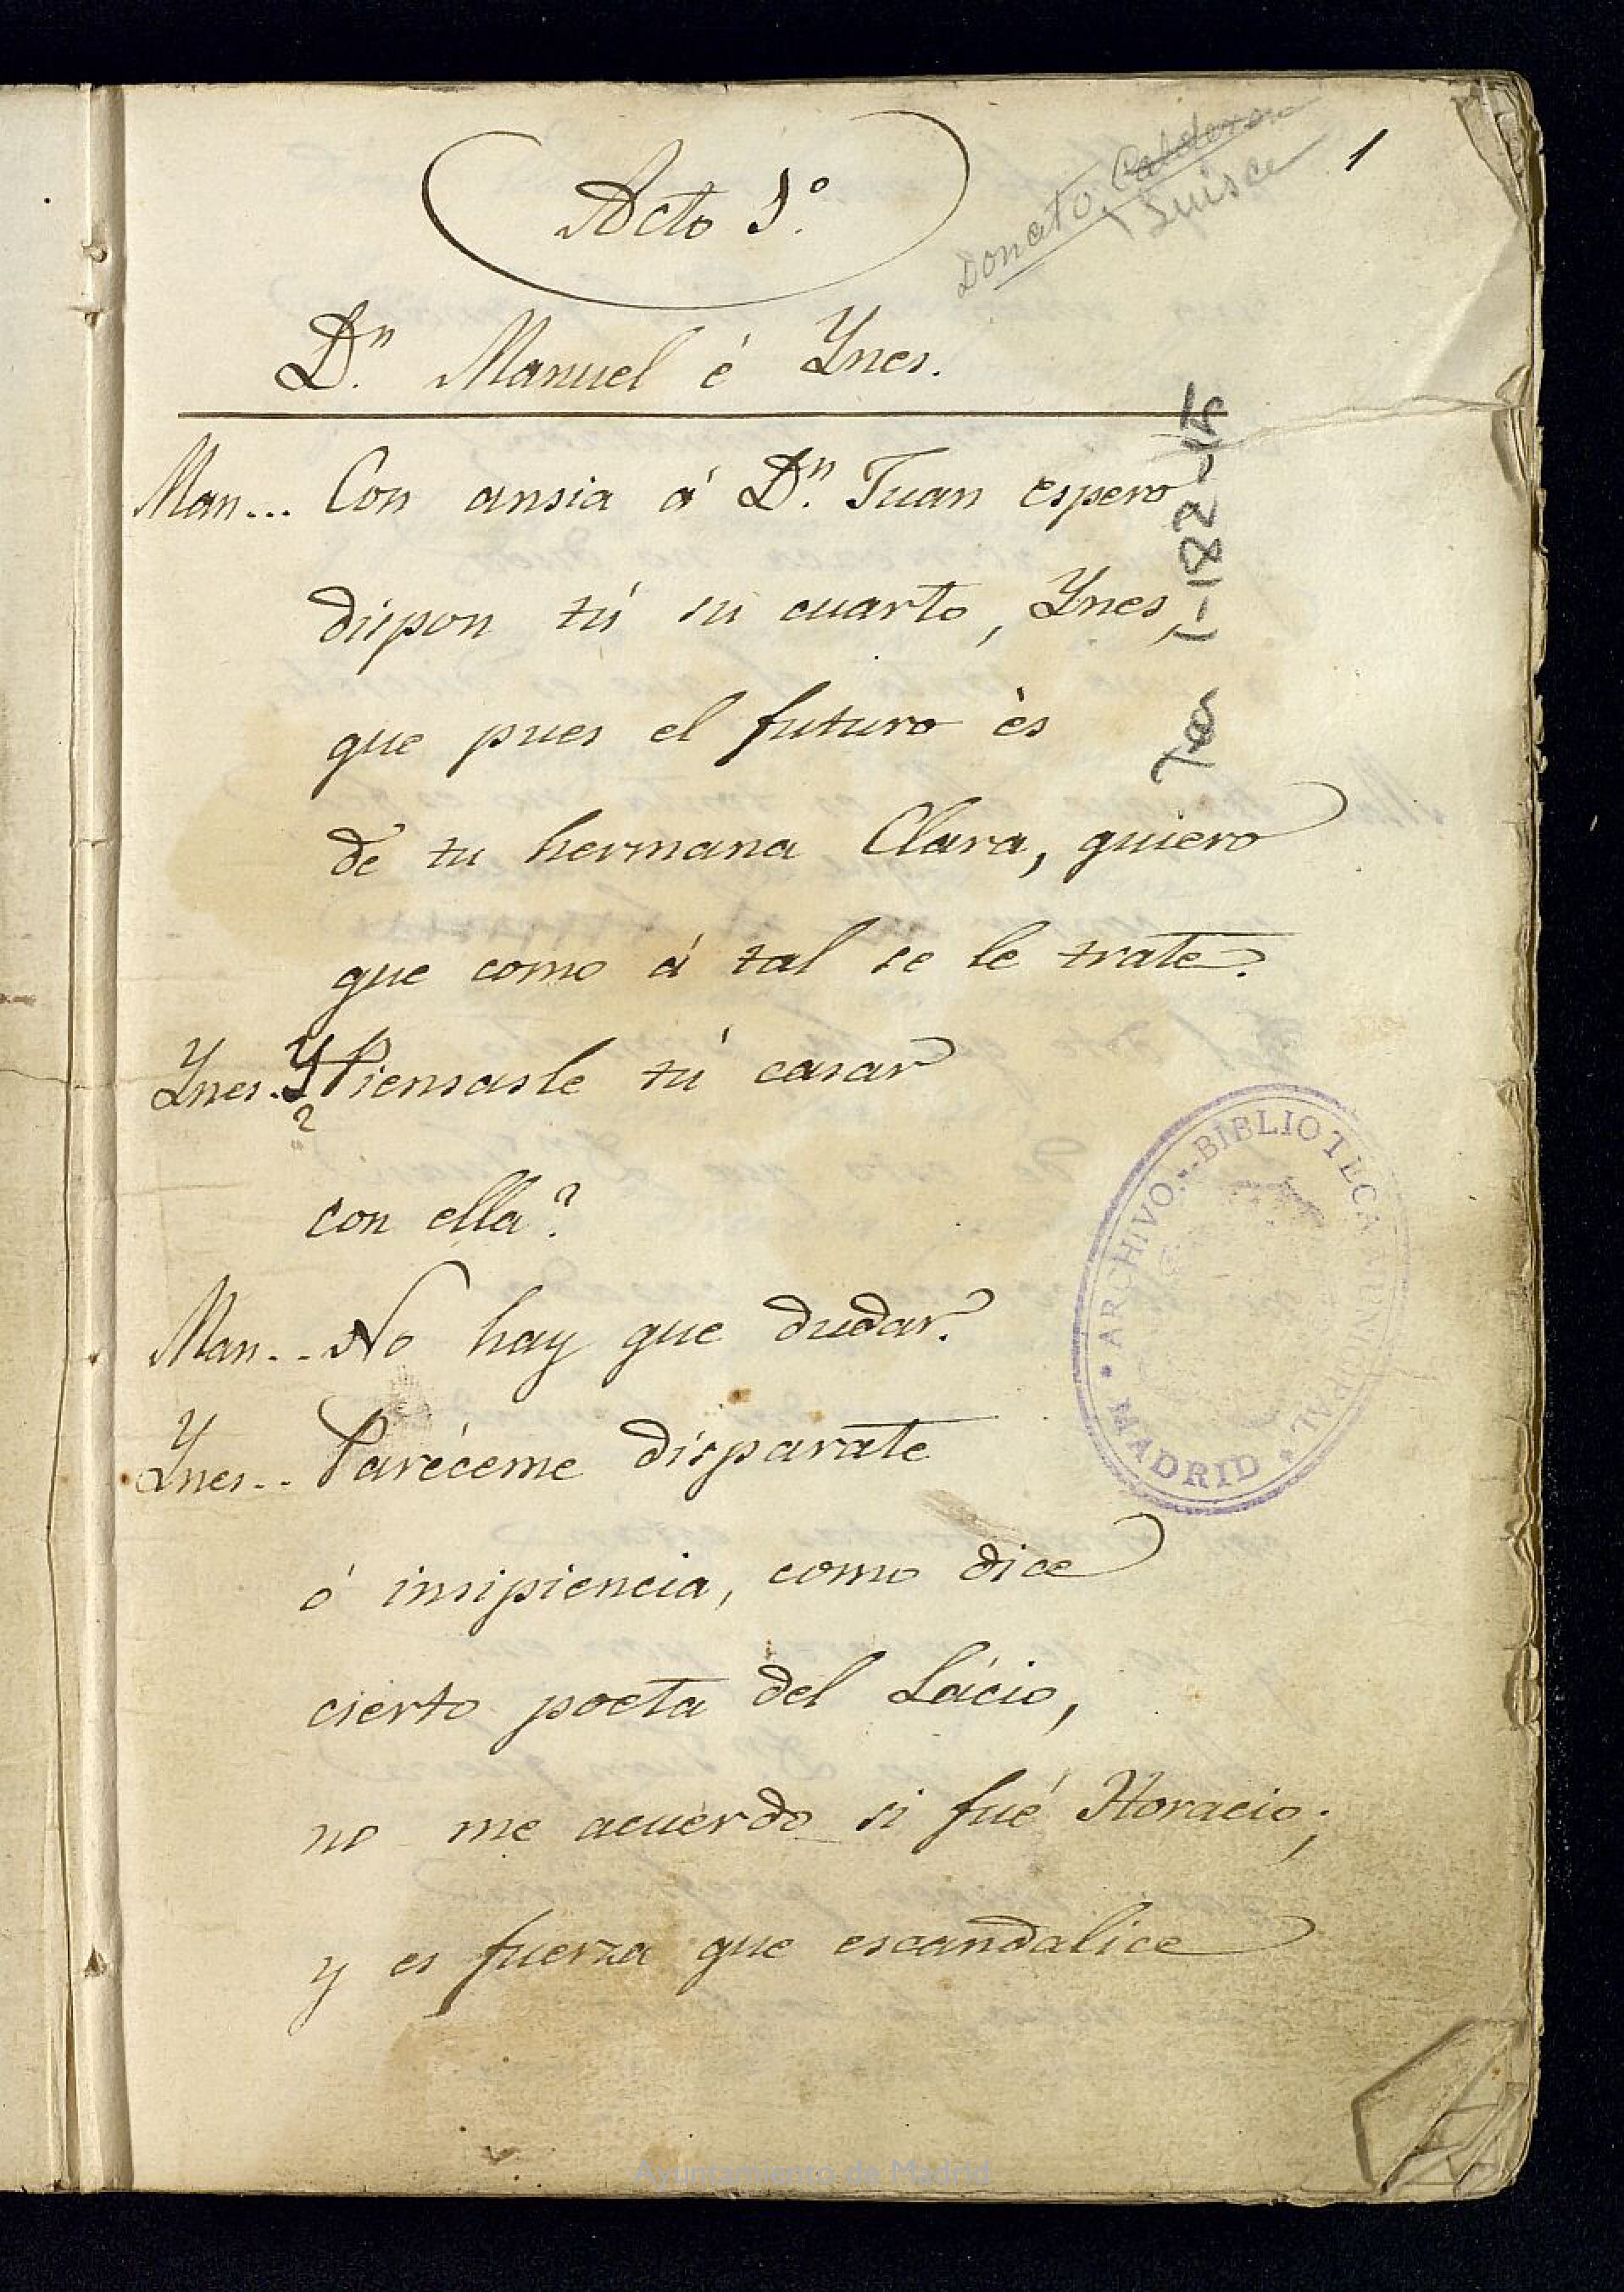 Donato Calderon
Suisce
1
Acto 1.º
D.n Manuel é Ynes.
Man... Con ansia á D.n Juan espero
dispon tú su cuarto, Ynes,
que pues el futuro ès
de tu hermana Clara, quiero
que como á tal se le trate.
Ynes. Y Piensasle tú casar
?
con ella?
Man.. No hay que dudar.
Ynes.. Paréceme disparate
ó insipiencia, como dice
cierto poeta del Lácio,
no me acuerdo si fué Horacio;
y es fuerza que escandalice
1-182-15
ARCHIVO-BIBLIOTECA MUNICIPAL
* MADRID *
Ayuntamiento de Madrid